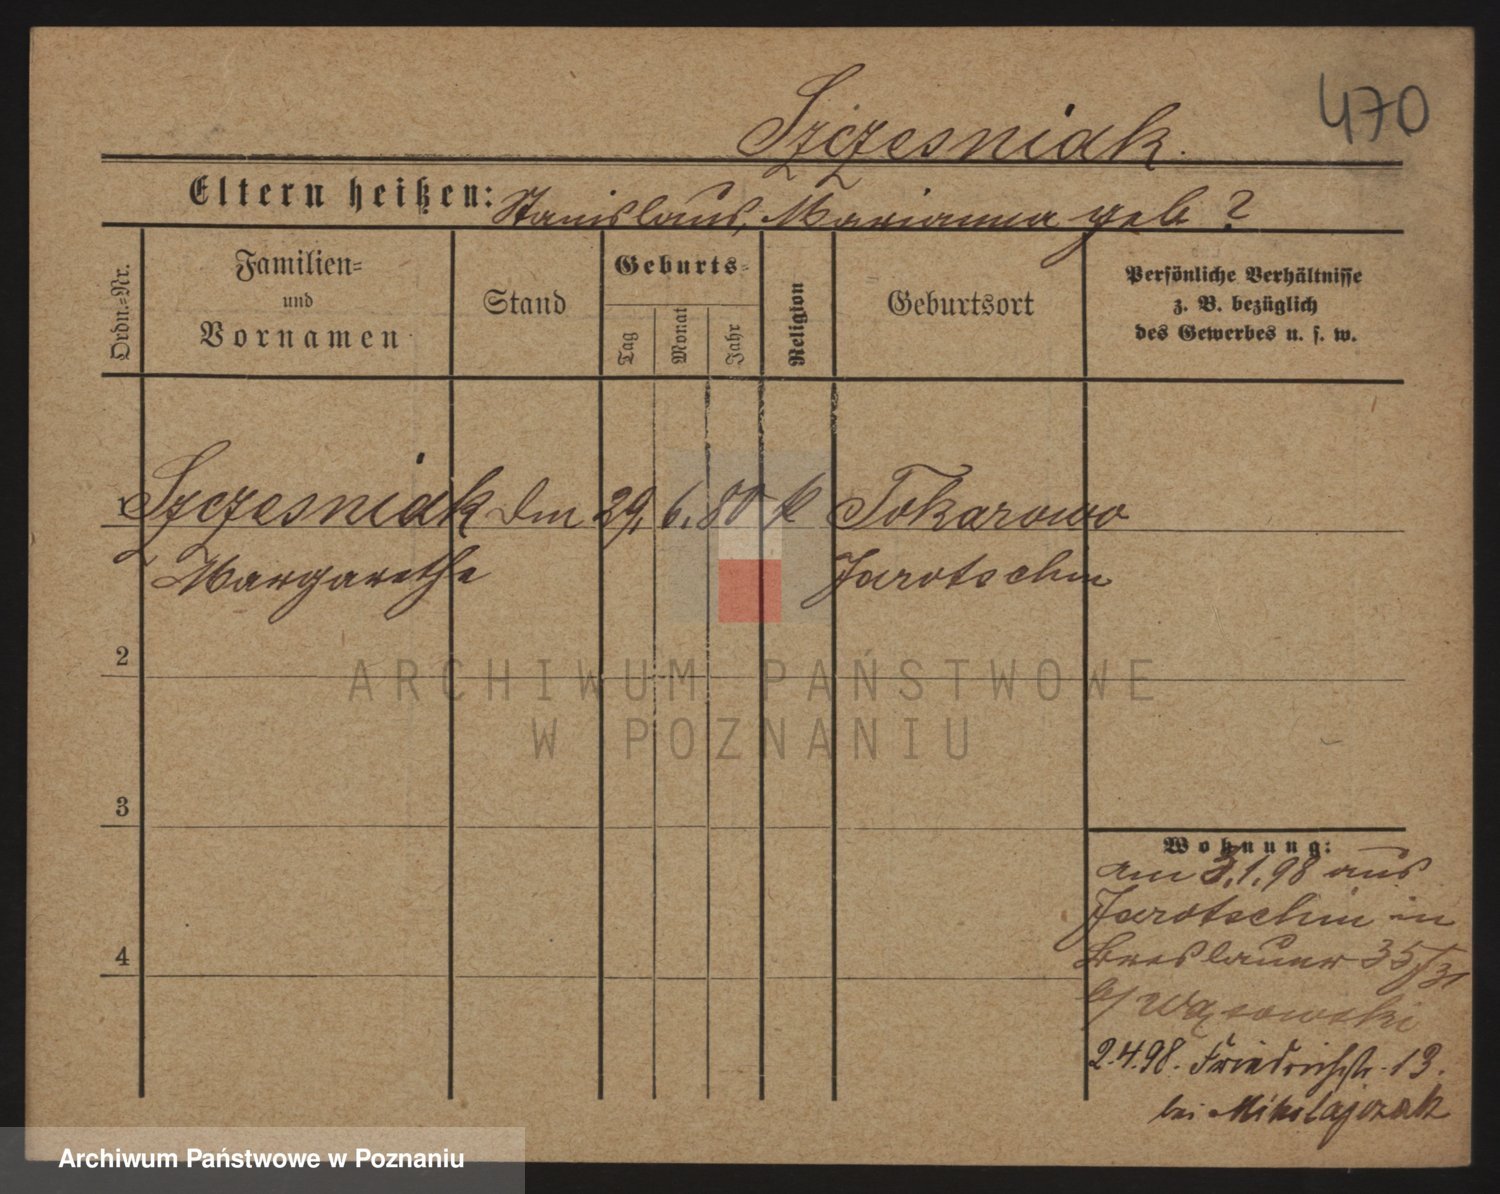 470
Szczesniak.
Eltern heißen: Stanislaus, Marianna geb ?
Ordn.=Nr.
Familien=
und
Vornamen
Stand
Geburts=
Tag
Monat
Jahr
Religion
Geburtsort
Persönliche Verhältnisse
z. B. bezüglich
des Gewerbes u. s. w.
1 Szczesniak 29. 6. 80 k Tokarowo
Margarethe Jarotschin
2
3
4
Wohnung:
am 3.1.98 aus
Jarotschin in
Breslauer 35/31
b/ Wąsowski
2.4.98. Friedrichstr. 13.
bei Mikolajczak
ARCHIWUM PAŃSTWOWE
W POZNANIU
Archiwum Państwowe w Poznaniu